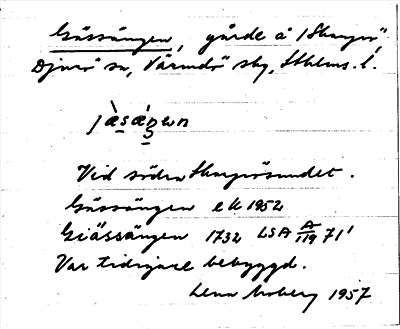 Gässängen, gärde å Skarpö
Djurö sn, Värmdö skg, Sthlms. l.
jæ̀sæ̀ŋen
Vid södra Skarpösundet.
Gässängen ek 1952
Giässängen 1732 LSA A/119 71'
Var tidigare bebyggd.
Lena Moberg 1957